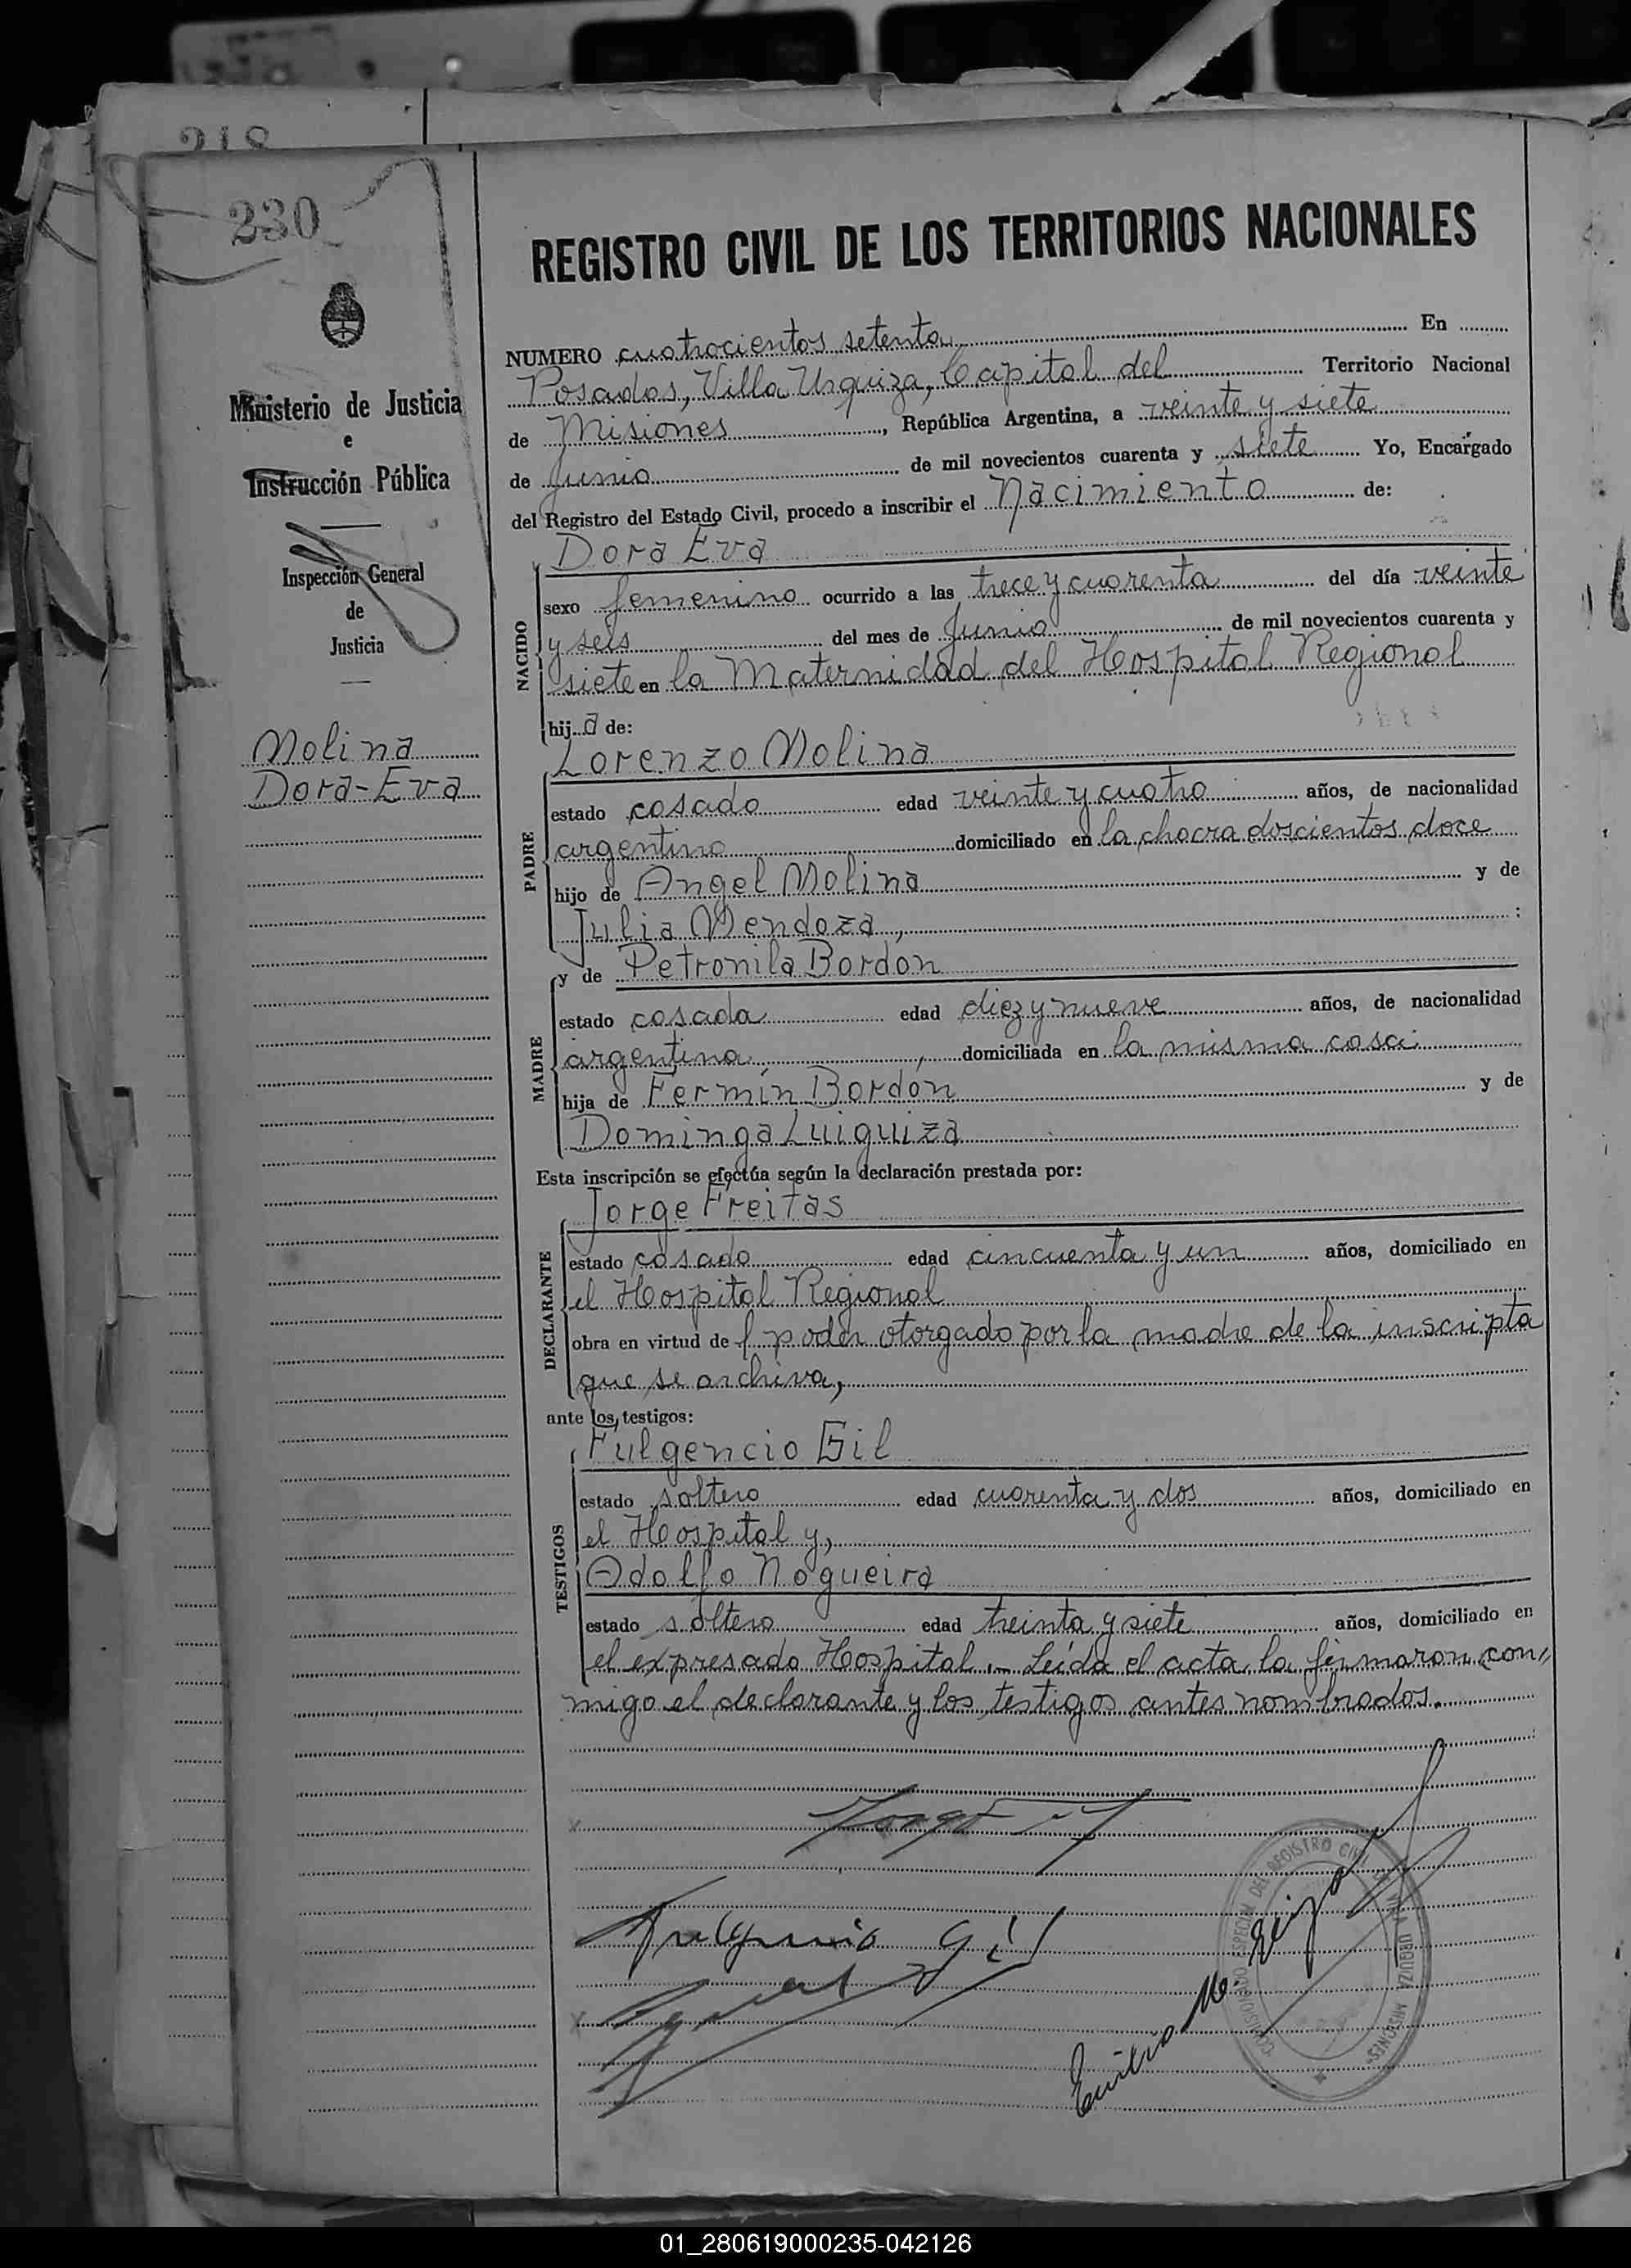 218
230
Ministerio de Justicia
e
Instrucción Pública
Inspección General
de
Justicia
Molina
Dora-Eva
REGISTRO CIVIL DE LOS TERRITORIOS NACIONALES
NUMERO cuatrocientos setenta En
Posadas, Villa Urquiza, Capital del Territorio Nacional
de Misiones, República Argentina, a veinte y siete
de Junio de mil novecientos cuarenta y siete Yo, Encargado
del Registro del Estado Civil, procedo a inscribir el Nacimiento de:
Dora Eva
NACIDO
sexo femenino ocurrido a las trece y cuarenta del día veinte
y seis del mes de Junio de mil novecientos cuarenta y
siete en la Maternidad del Hospital Regional
hija de:
Lorenzo Molina
PADRE
estado casado edad veinte y cuatro años, de nacionalidad
argentino domiciliado en la chacra doscientos doce
hijo de Angel Molina y de
Julia Mendoza, :
y de Petronila Bordon
MADRE
estado casada edad diez y nueve años, de nacionalidad
argentina, domiciliada en la misma casa
hija de Fermín Bordón y de
Dominga Luiguiza
Esta inscripción se efectúa según la declaración prestada por:
Jorge Freitas
DECLARANTE
estado casado edad cincuenta y un años, domiciliado en
el Hospital Regional
obra en virtud del poder otorgado por la madre de la inscripta
que se archiva,
ante los testigos:
Fulgencio Gil
TESTIGOS
estado soltero edad cuarenta y dos años, domiciliado en
el Hospital y,
Adolfo Nogueira
estado soltero edad treinta y siete años, domiciliado en
el expresado Hospital.- Leída el acta, la firmaron con〃
migo el declarante y los testigos antes nombrados.
Fulgencio Gil
Emilio M.
REGISTRO CIVIL VILLA URQUIZA MISIONES
01_280619000235-042126